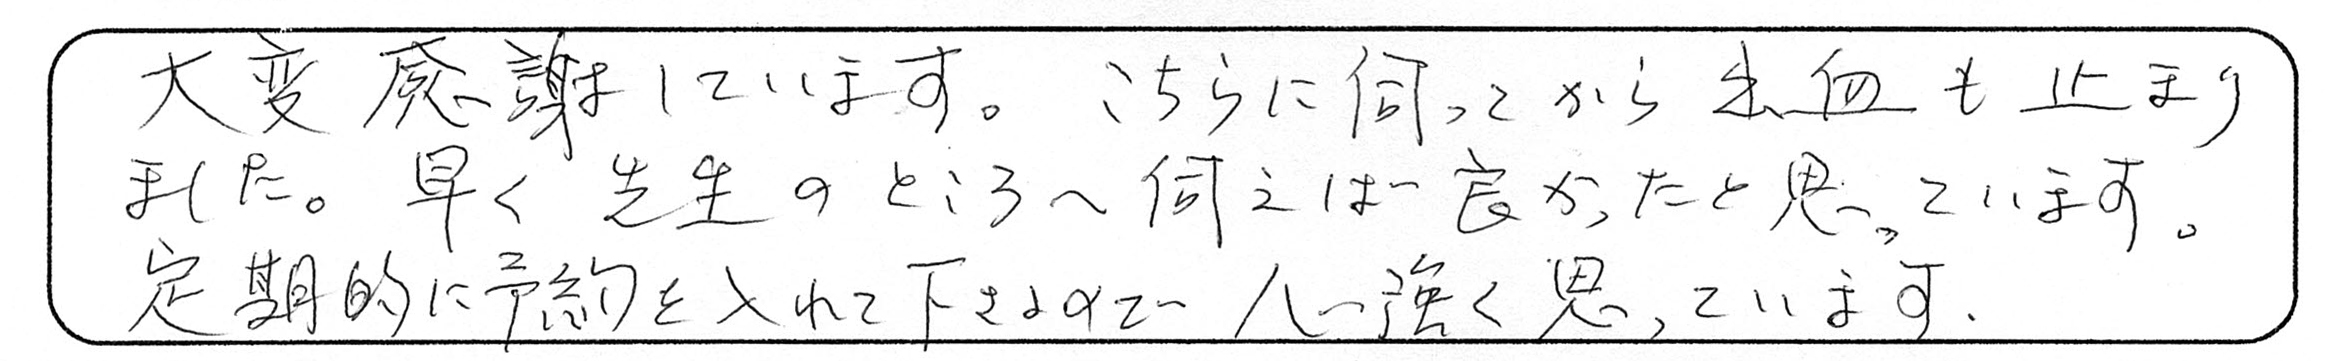 大変感謝しています。こちらに伺ってから出血も止まり
ました。早く先生のところへ伺えば良かったと思っています。
定期的に予約を入れて下さるので心強く思っています.